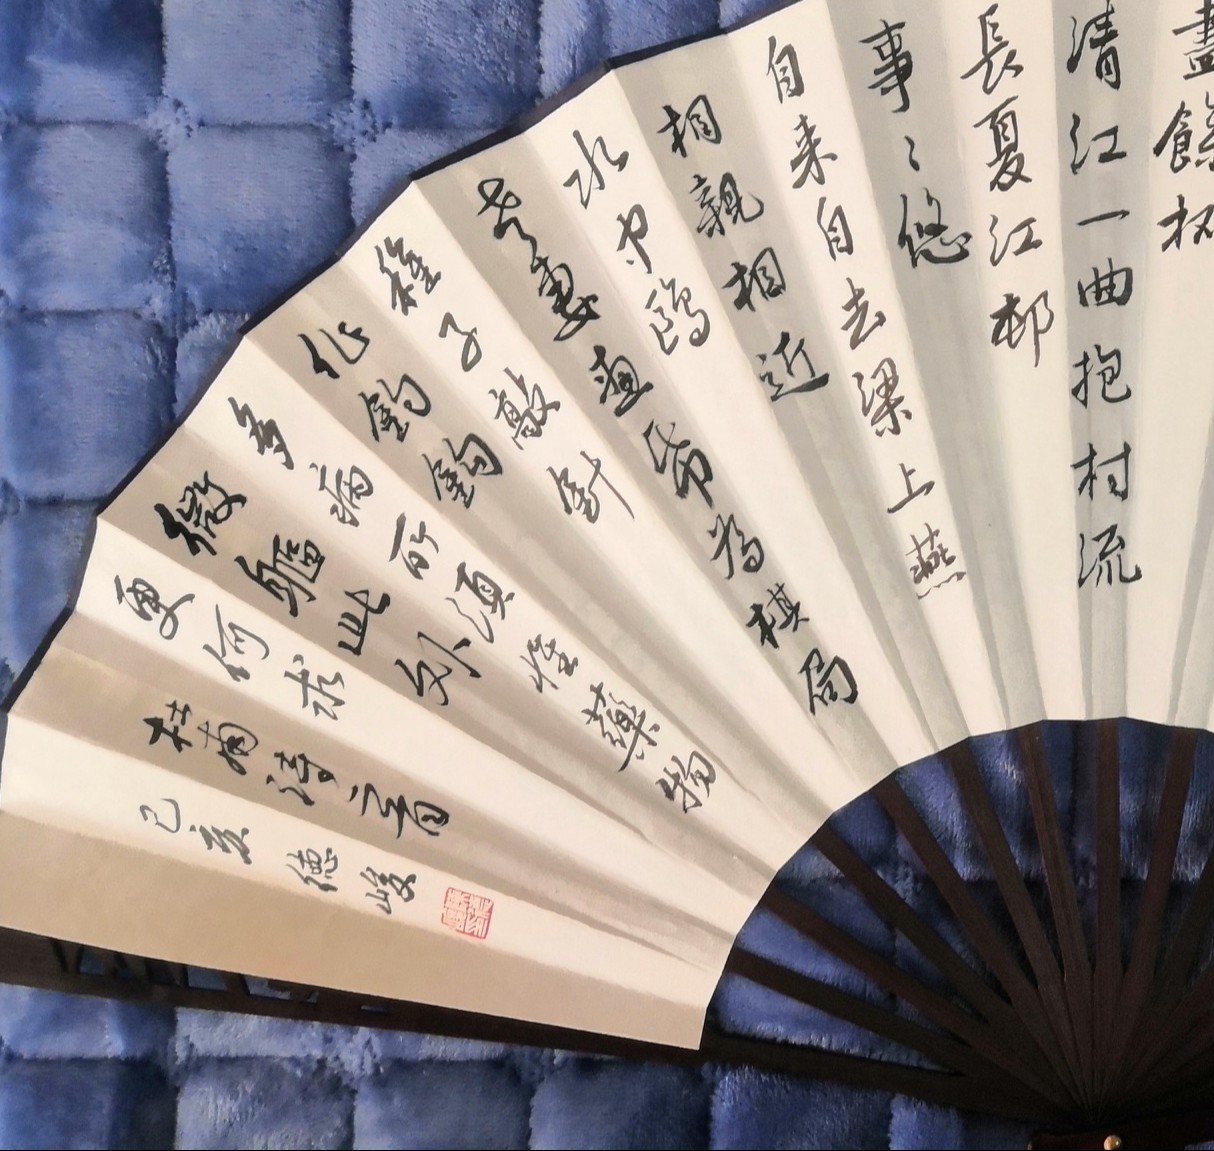 盡餘杯
清江一曲抱村流
長夏江邨
事〻悠
自来自去梁上燕
相親相近
水中鷗
老妻畫帋為棋局
稚子敲針
作釣鈎
多病所須惟藥物
微軀此外
更何求
杜甫詩二首
己亥 德峻